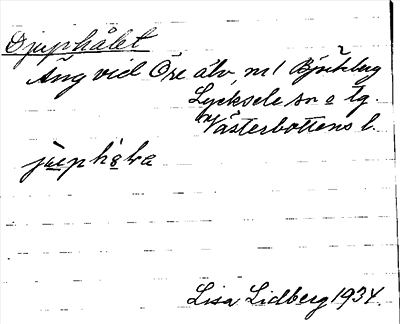 Djuphålet
Äng vid Öre älv, n1 Björkberg
Lycksele sn o tg
Västerbottens l.
juphåla
Lisa Lidberg 1934.